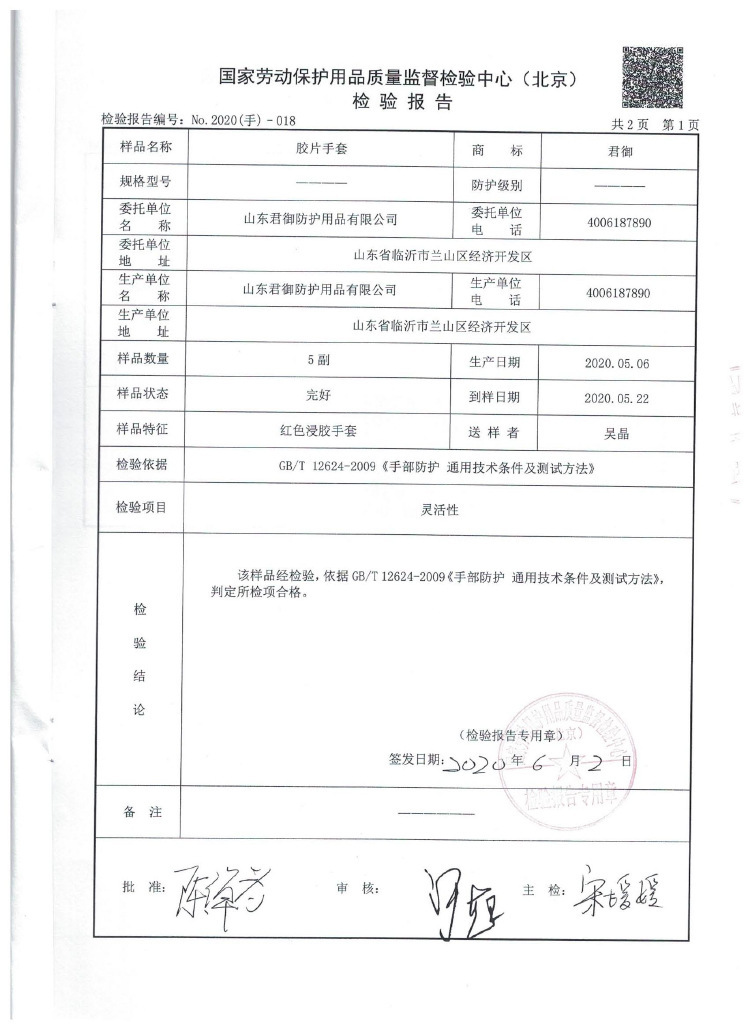 国家劳动保护用品质量监督检验中心（北京）
检 验 报 告
检验报告编号：No.2020(手)-018
共2页 第1页
样品名称 胶片手套 商 标 君御
规格型号 ———— 防护级别 ————
委托单位名 称 山东君御防护用品有限公司 委托单位电 话 4006187890
委托单位地 址 山东省临沂市兰山区经济开发区
生产单位名 称 山东君御防护用品有限公司 生产单位电 话 4006187890
生产单位地 址 山东省临沂市兰山区经济开发区
样品数量 5副 生产日期 2020.05.06
样品状态 完好 到样日期 2020.05.22
样品特征 红色浸胶手套 送 样 者 吴晶
检验依据 GB/T 12624-2009《手部防护 通用技术条件及测试方法》
检验项目 灵活性
检验结论
该样品经检验，依据GB/T 12624-2009《手部防护 通用技术条件及测试方法》，
判定所检项合格。
（检验报告专用章）
签发日期：2020年6月2日
检验报告专用章
备 注 ——————
批 准： 审 核： 主 检：宋媛媛